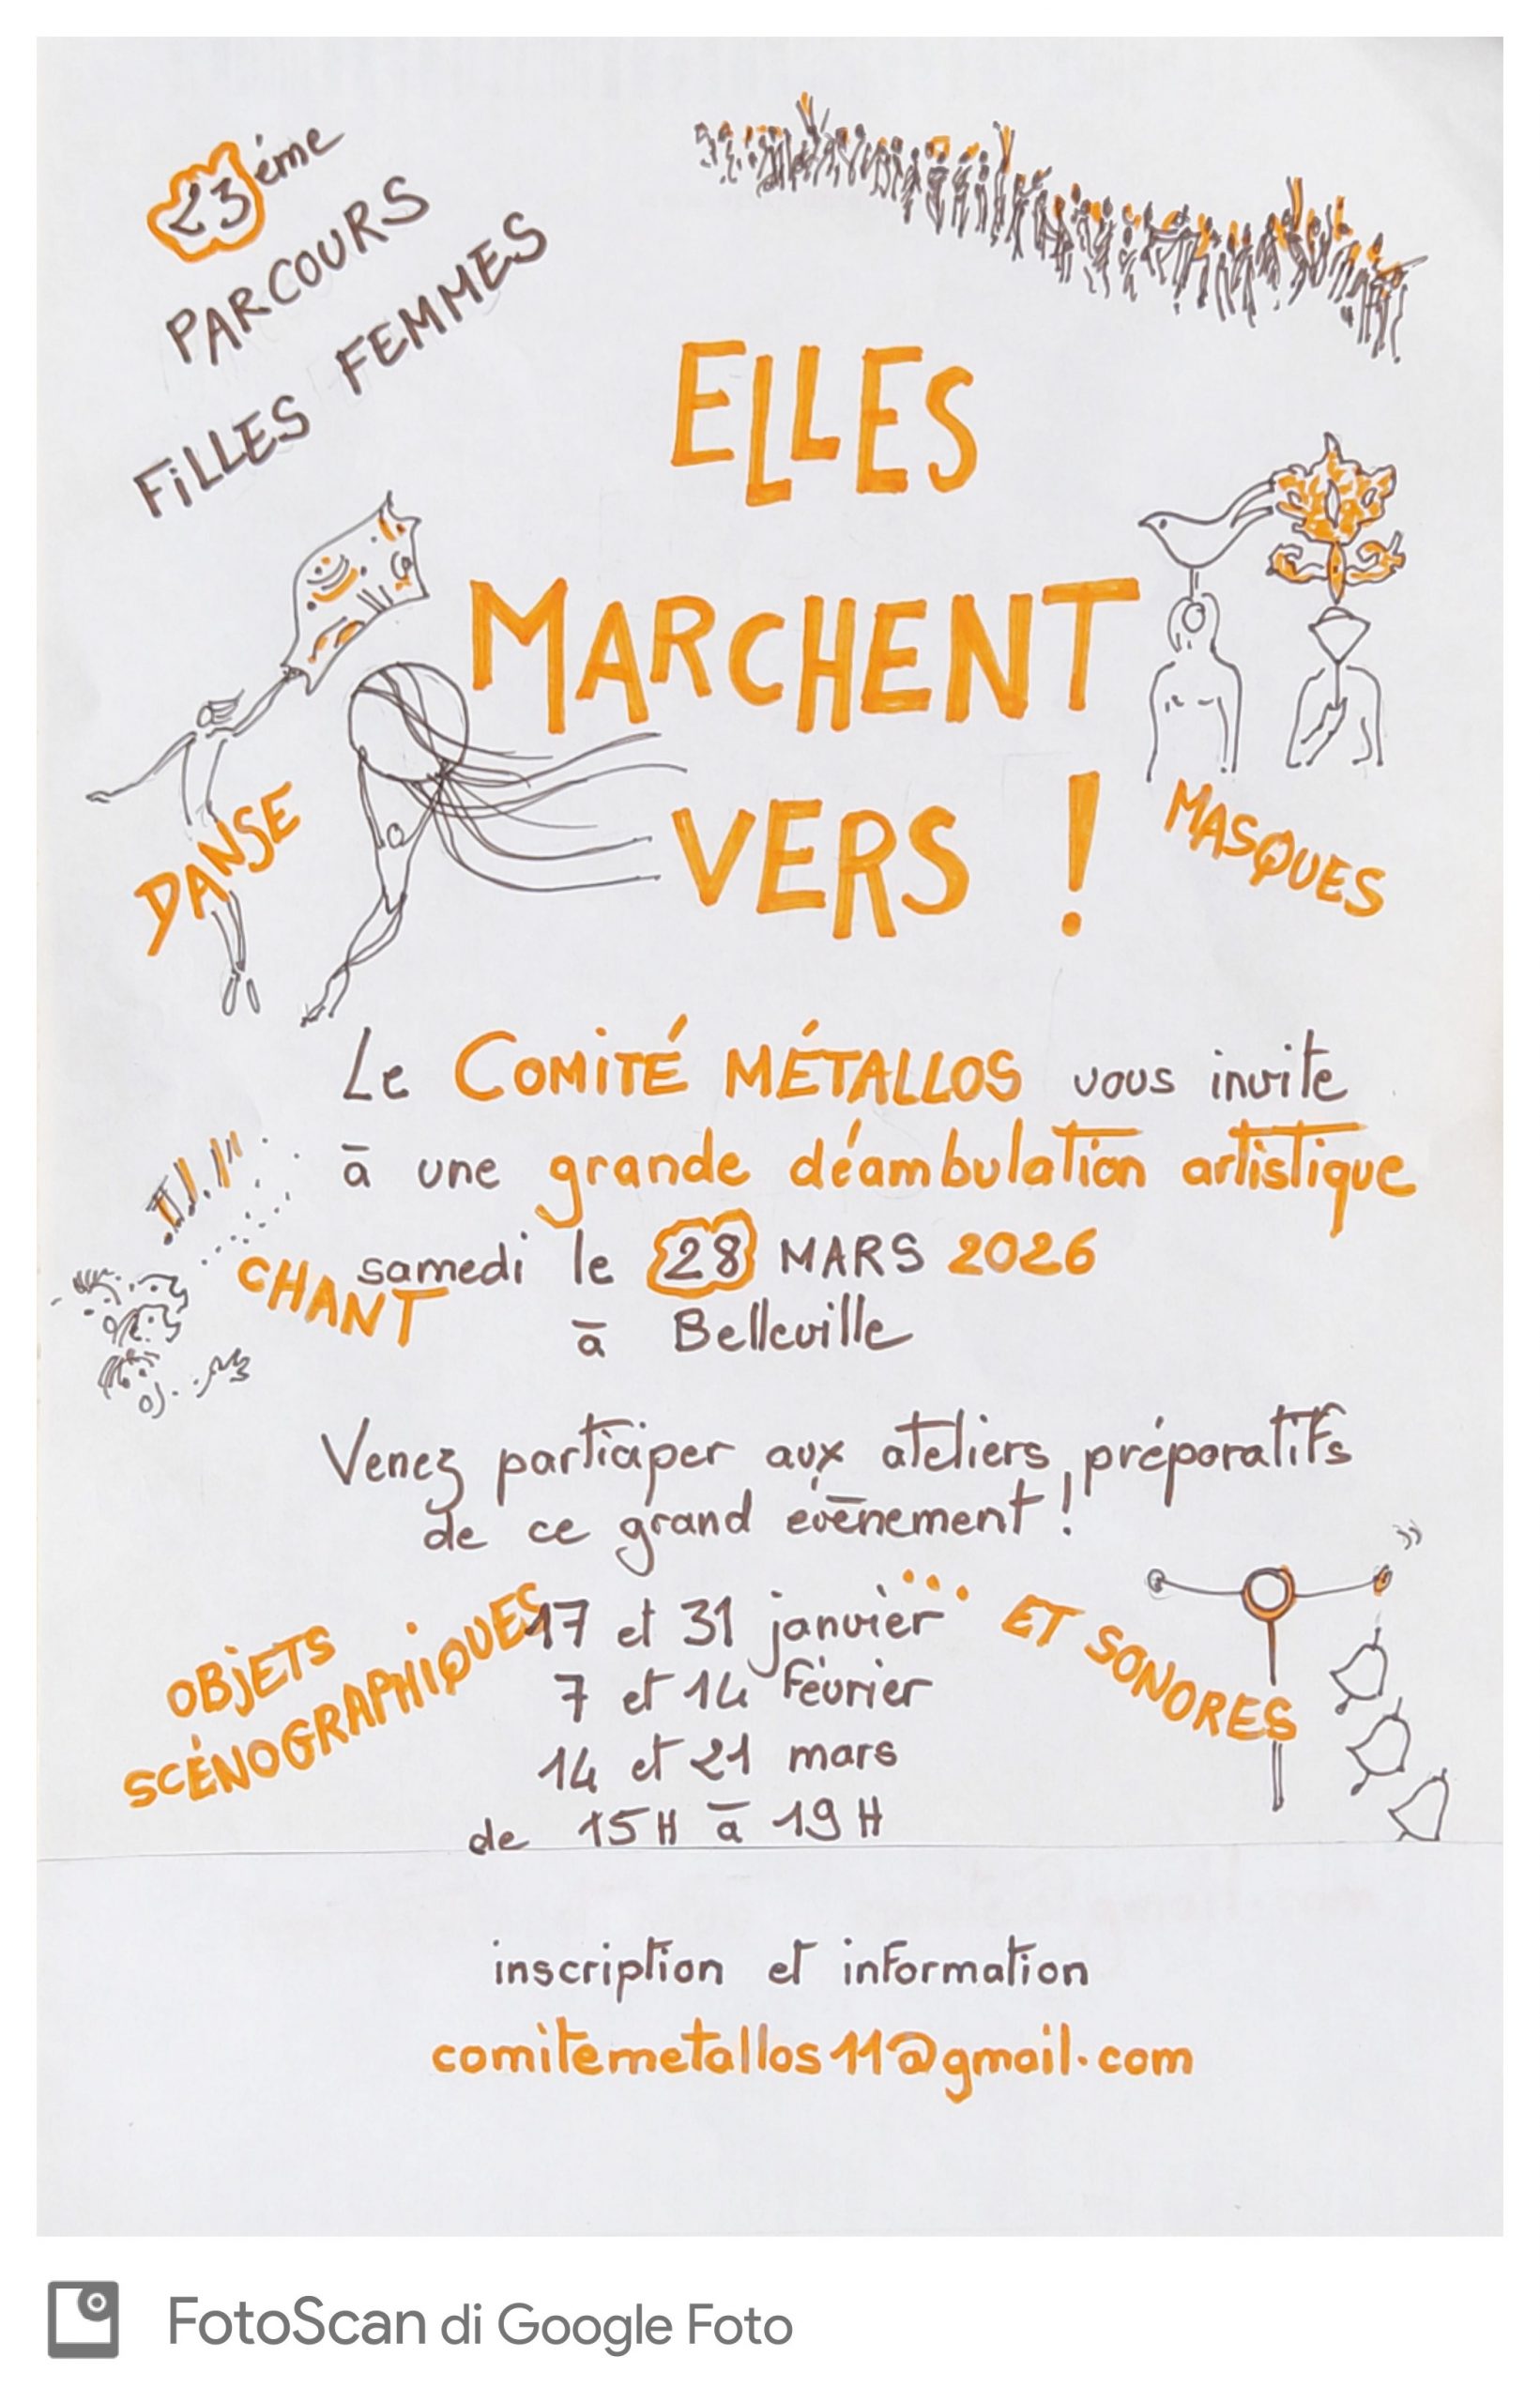 23ème
PARCOURS
FILLES FEMMES
ELLES
MARCHENT
VERS !
DANSE
MASQUES
Le COMITÉ MÉTALLOS vous invite
à une grande déambulation artistique
samedi le 28 MARS 2026
CHANT
à Belleville
Venez participer aux ateliers préparatifs
de ce grand evènement !
OBJETS
SCÉNOGRAPHIQUES
... ET SONORES
17 et 31 janvier
7 et 14 Février
14 et 21 mars
de 15H à 19H
inscription et information
comitemetallos11@gmail.com
FotoScan di Google Foto